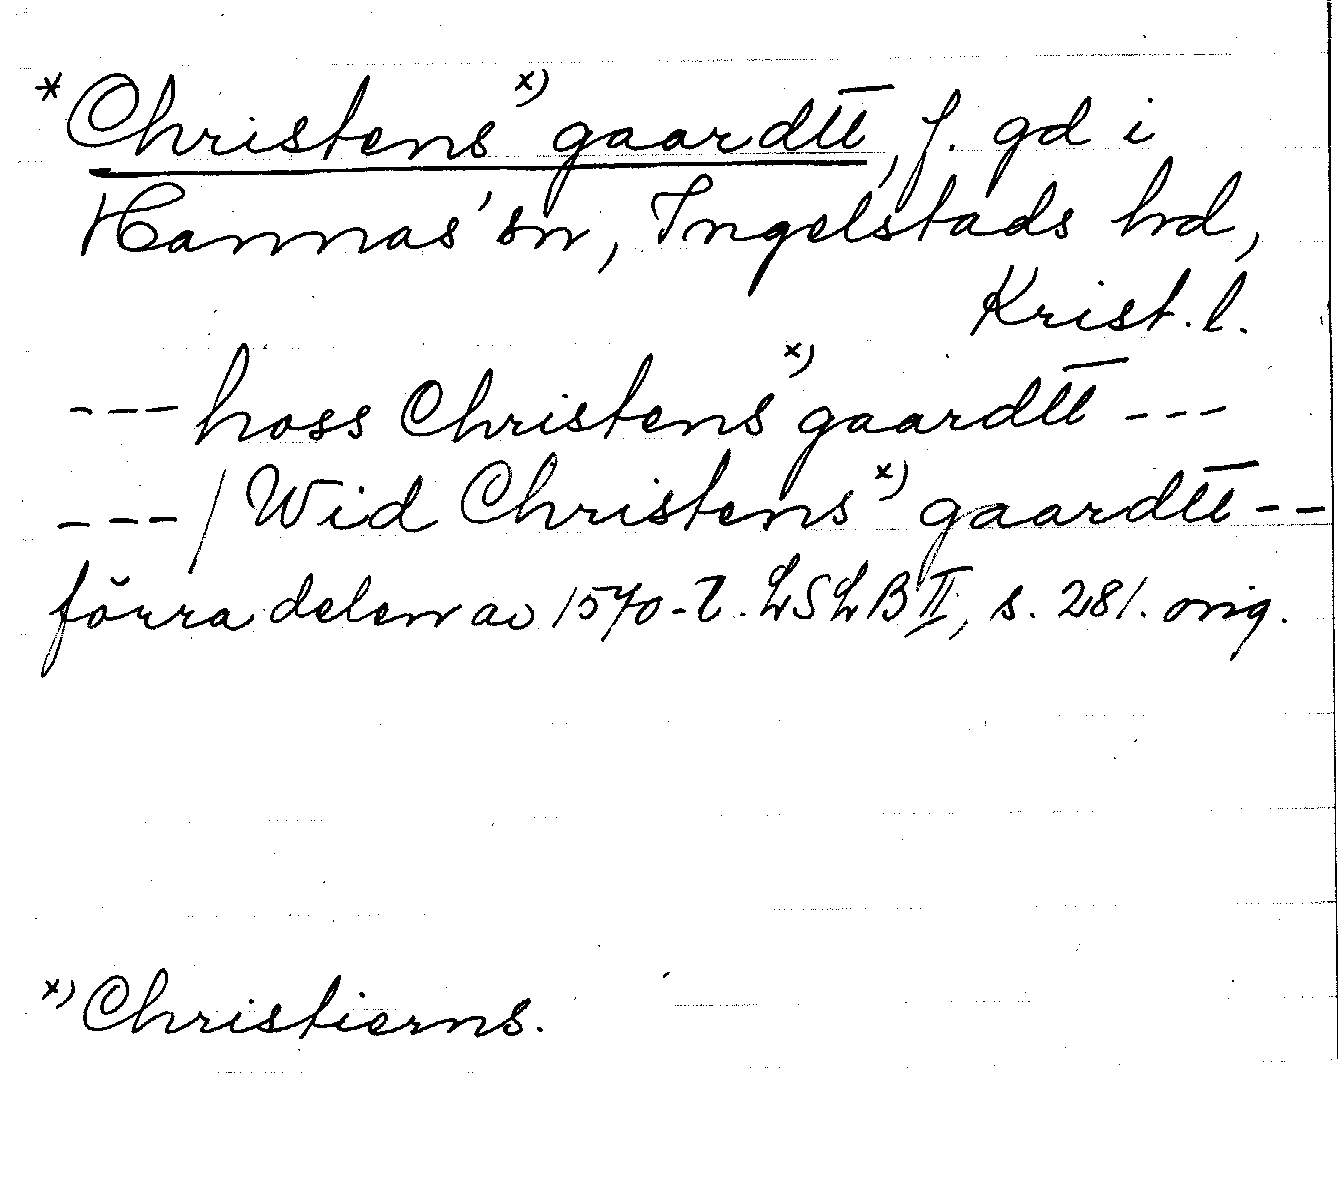 *Christens x) gaardtt̅, f. gd i
Hannas' sn, Ingelstads hd,
Krist. l.
--- hoss Christens x) gaardtt̅ ---
--- / Wid Christens x) gaardtt̅ --
förra delen av 1570-t. LSLB II, s. 281. orig.
x) Christierns.